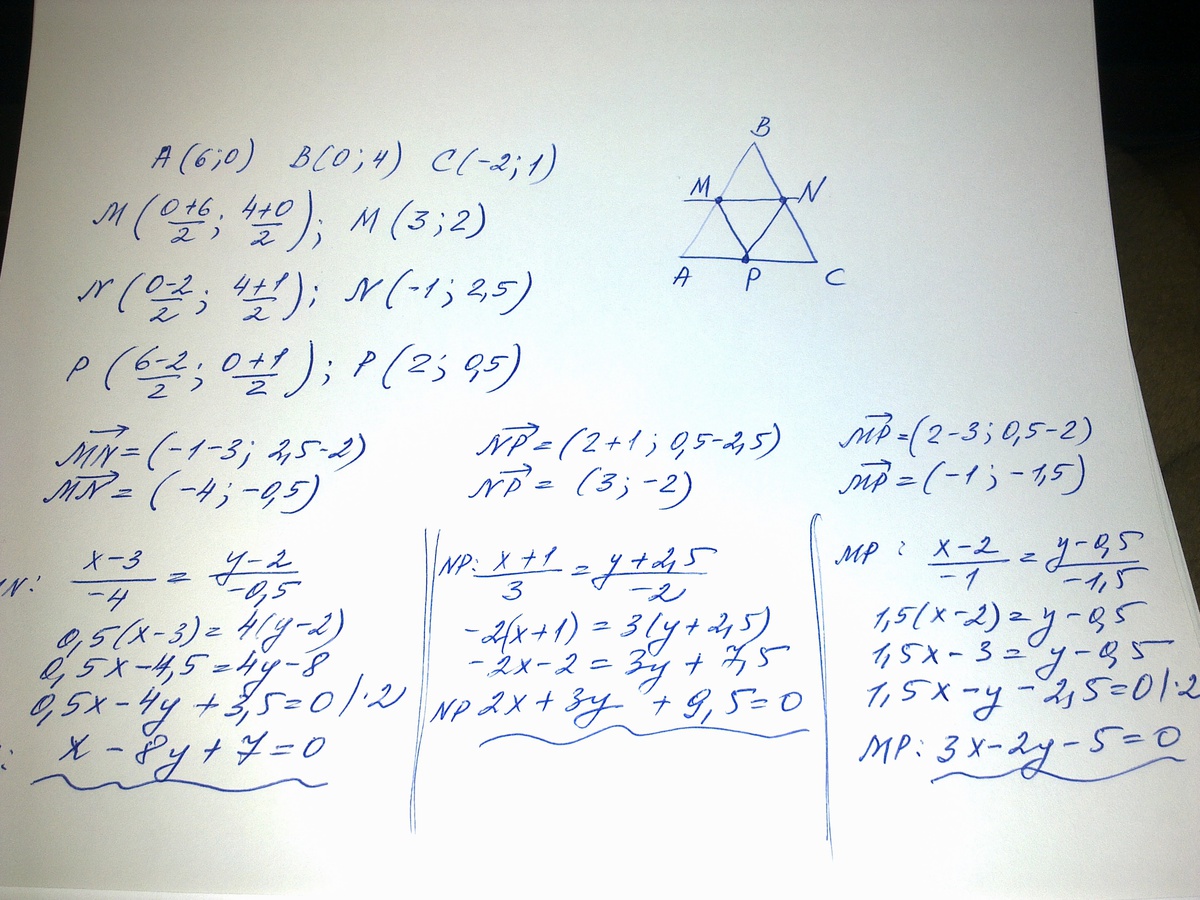 A(6;0) B(0;4) C(-2;1)
M((0+6)/2; (4+0)/2); M(3;2)
N((0-2)/2; (4+1)/2); N(-1;2,5)
P((6-2)/2; (0+1)/2); P(2;0,5)
B
M N
A P C
MN→=(-1-3; 2,5-2)
MN→=(-4;-0,5)
NP→=(2+1;0,5-2,5)
NP→=(3;-2)
MP→=(2-3;0,5-2)
MP→=(-1;-1,5)
N: (x-3)/-4 = (y-2)/-0,5
0,5(x-3)=4(y-2)
0,5x-4,5=4y-8
0,5x-4y+3,5=0 |·2
: x-8y+7=0
NP: (x+1)/3 = (y+2,5)/-2
-2(x+1)=3(y+2,5)
-2x-2=3y+7,5
NP 2x+3y+9,5=0
MP: (x-2)/-1 = (y-0,5)/-1,5
1,5(x-2)=y-0,5
1,5x-3=y-0,5
1,5x-y-2,5=0 |·2
MP: 3x-2y-5=0